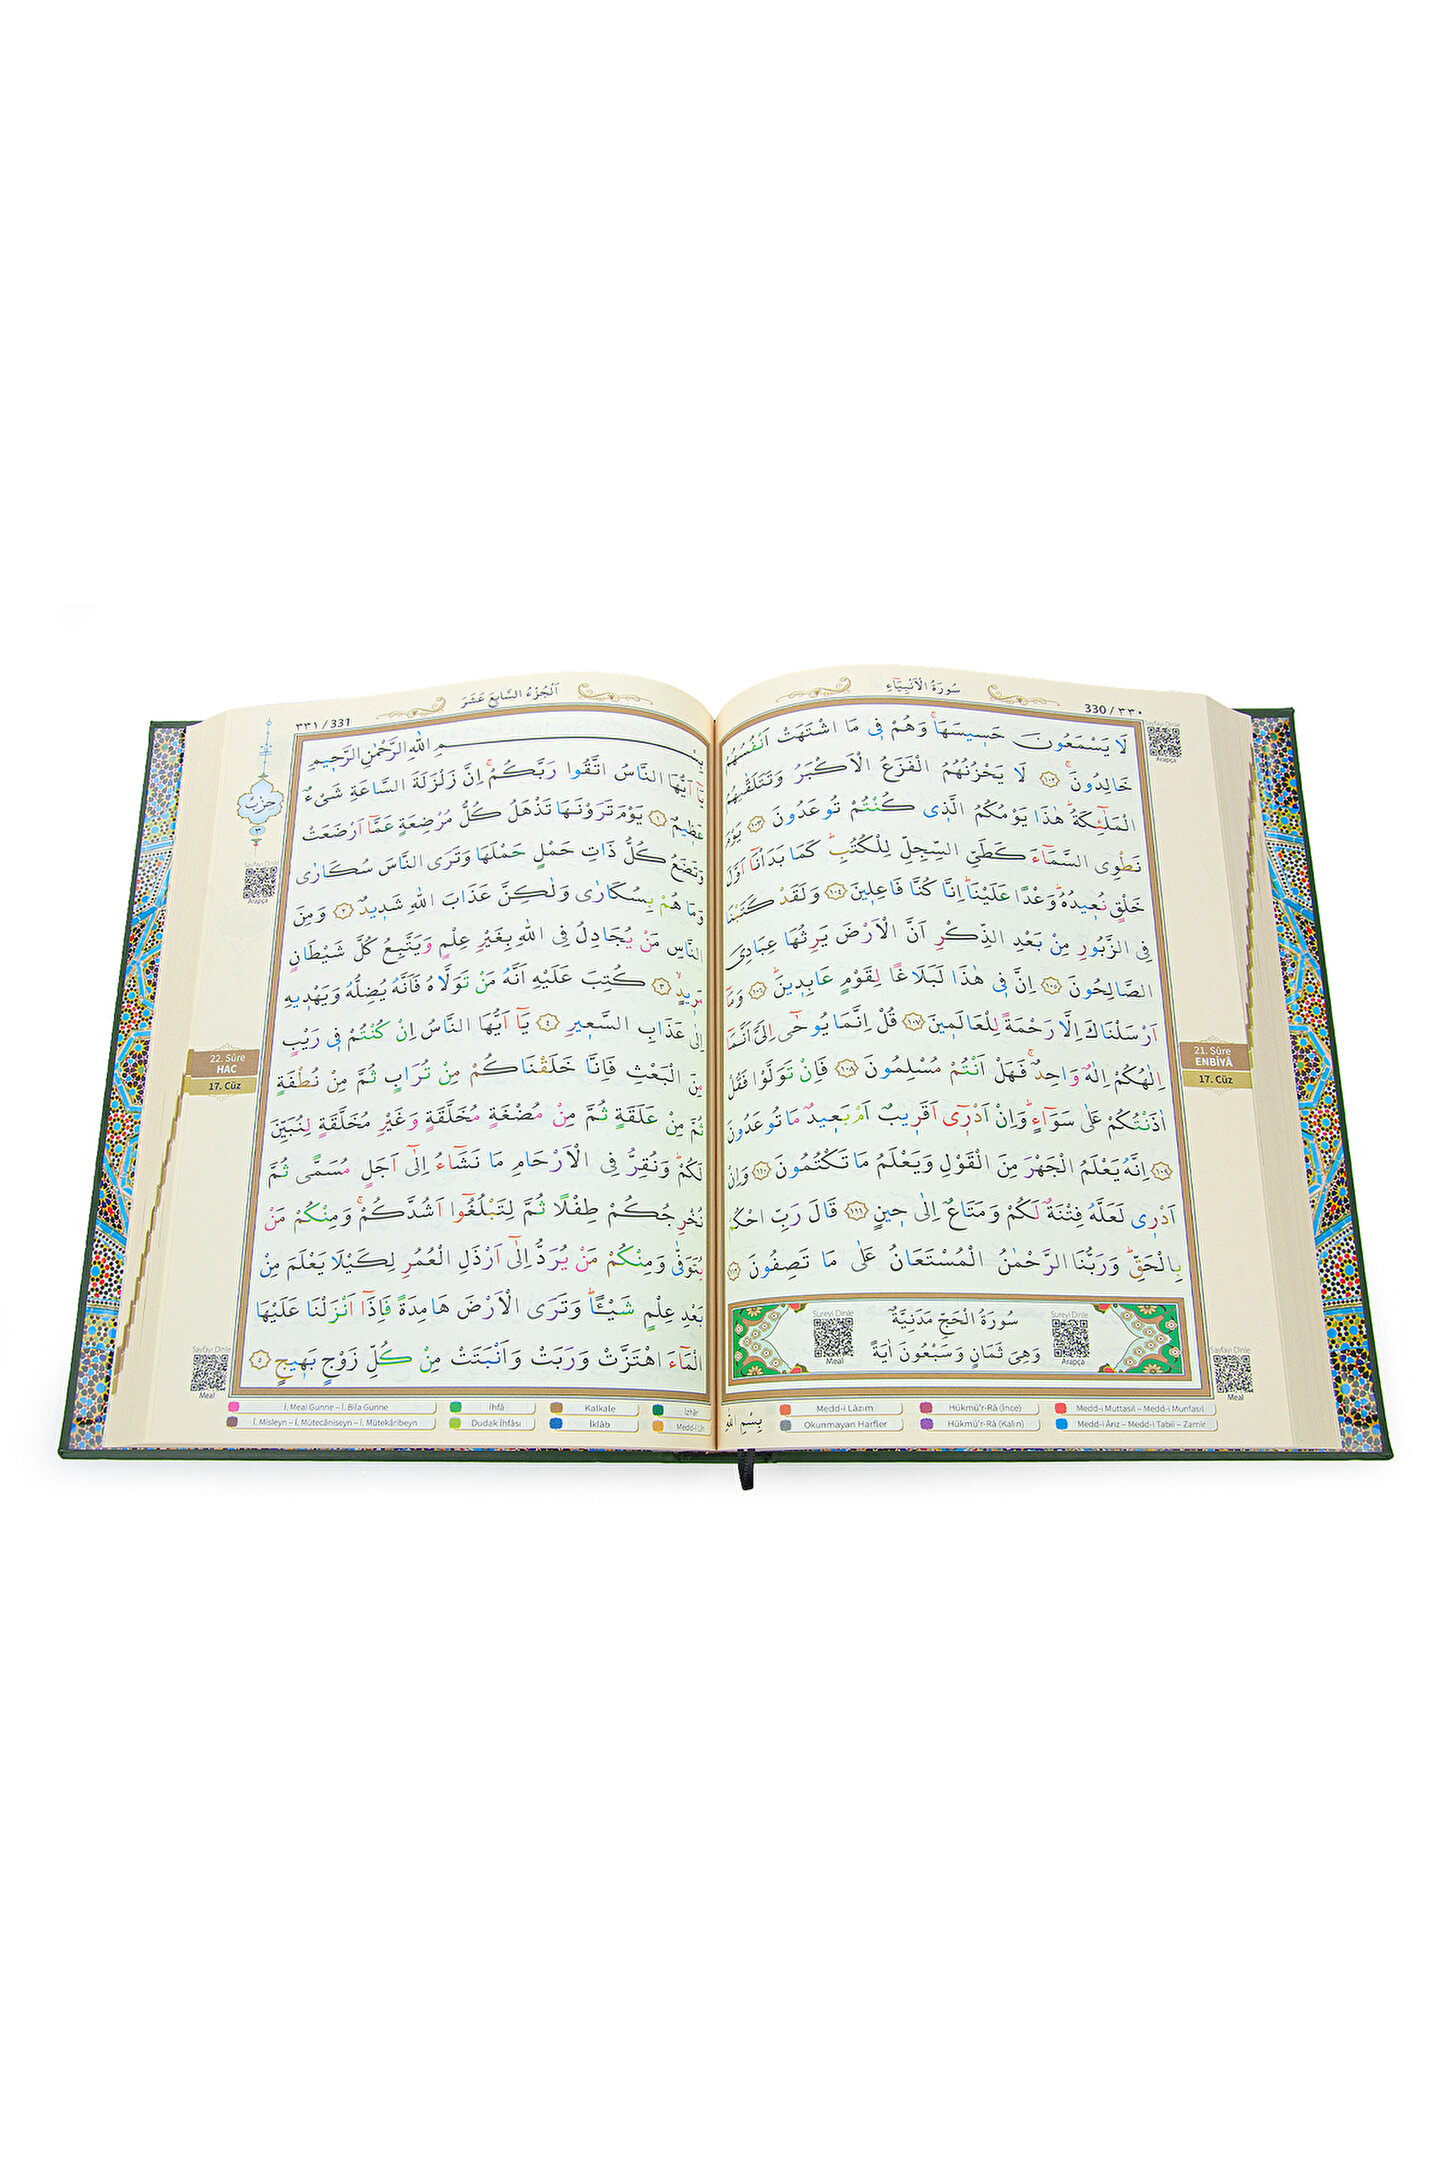 سُورَةُ الْاَنْبِيَٓاءِ
330 / ٣٣٠
لَا يَسْمَعُونَ حَسِيسَهَاۚ وَهُمْ فِي مَا اشْتَهَتْ اَنْفُسُهُمْ
خَالِدُونَۚ ﴿١٠٢﴾ لَا يَحْزُنُهُمُ الْفَزَعُ الْاَكْبَرُ وَتَتَلَقّٰيهُمُ
الْمَلٰٓئِكَةُۜ هٰذَا يَوْمُكُمُ الَّذِي كُنْتُمْ تُوعَدُونَ ﴿١٠٣﴾ يَوْمَ
نَطْوِي السَّمَٓاءَ كَطَيِّ السِّجِلِّ لِلْكُتُبِۜ كَمَا بَدَأْنَٓا اَوَّلَ
خَلْقٍ نُعِيدُهُۜ وَعْدًا عَلَيْنَاۜ اِنَّا كُنَّا فَاعِلِينَ ﴿١٠٤﴾ وَلَقَدْ كَتَبْنَا
فِي الزَّبُورِ مِنْ بَعْدِ الذِّكْرِ اَنَّ الْاَرْضَ يَرِثُهَا عِبَادِيَ
الصَّالِحُونَ ﴿١٠٥﴾ اِنَّ فِي هٰذَا لَبَلَاغًا لِقَوْمٍ عَابِدِينَۜ ﴿١٠٦﴾ وَمَٓا
اَرْسَلْنَاكَ اِلَّا رَحْمَةً لِلْعَالَمِينَ ﴿١٠٧﴾ قُلْ اِنَّمَا يُوحٰٓى اِلَيَّ اَنَّمَٓا
اِلٰهُكُمْ اِلٰهٌ وَاحِدٌۚ فَهَلْ اَنْتُمْ مُسْلِمُونَ ﴿١٠٨﴾ فَاِنْ تَوَلَّوْا فَقُلْ
اٰذَنْتُكُمْ عَلٰى سَوَٓاءٍۜ وَاِنْ اَدْرِٓي اَقَرِيبٌ اَمْ بَعِيدٌ مَا تُوعَدُونَ
﴿١٠٩﴾ اِنَّهُ يَعْلَمُ الْجَهْرَ مِنَ الْقَوْلِ وَيَعْلَمُ مَا تَكْتُمُونَ ﴿١١٠﴾ وَاِنْ
اَدْرِي لَعَلَّهُ فِتْنَةٌ لَكُمْ وَمَتَاعٌ اِلٰى حِينٍ ﴿١١١﴾ قَالَ رَبِّ احْكُمْ
بِالْحَقِّۜ وَرَبُّنَا الرَّحْمٰنُ الْمُسْتَعَانُ عَلٰى مَا تَصِفُونَ ﴿١١٢﴾
سُورَةُ الْحَجِّ مَدَنِيَّةٌ
وَهِيَ ثَمَانٍ وَسَبْعُونَ اٰيَةً
Sureyi Dinle
Arapça
Sureyi Dinle
Meal
Sayfayı Dinle
Arapça
21. Sûre
ENBİYÂ
17. Cüz
Sayfayı Dinle
Meal
بِسْمِ اللهِ
Medd-i Lâzım
Hükmü'r-Râ (İnce)
Medd-i Muttasıl – Medd-i Munfasıl
Okunmayan Harfler
Hükmü'r-Râ (Kalın)
Medd-i Ârız – Medd-i Tabiî – Zamir
اَلْجُزْءُ السَّابِعَ عَشَرَ
٣٣١ / 331
بِسْمِ اللهِ الرَّحْمٰنِ الرَّحِيمِ
يَٓا اَيُّهَا النَّاسُ اتَّقُوا رَبَّكُمْۚ اِنَّ زَلْزَلَةَ السَّاعَةِ شَيْءٌ
عَظِيمٌ ﴿١﴾ يَوْمَ تَرَوْنَهَا تَذْهَلُ كُلُّ مُرْضِعَةٍ عَمَّٓا اَرْضَعَتْ
وَتَضَعُ كُلُّ ذَاتِ حَمْلٍ حَمْلَهَا وَتَرَى النَّاسَ سُكَارٰى
وَمَا هُمْ بِسُكَارٰى وَلٰكِنَّ عَذَابَ اللهِ شَدِيدٌ ﴿٢﴾ وَمِنَ
النَّاسِ مَنْ يُجَادِلُ فِي اللهِ بِغَيْرِ عِلْمٍ وَيَتَّبِعُ كُلَّ شَيْطَانٍ
مَرِيدٍۙ ﴿٣﴾ كُتِبَ عَلَيْهِ اَنَّهُ مَنْ تَوَلَّاهُ فَاَنَّهُ يُضِلُّهُ وَيَهْدِيهِ
اِلٰى عَذَابِ السَّعِيرِ ﴿٤﴾ يَٓا اَيُّهَا النَّاسُ اِنْ كُنْتُمْ فِي رَيْبٍ
مِنَ الْبَعْثِ فَاِنَّا خَلَقْنَاكُمْ مِنْ تُرَابٍ ثُمَّ مِنْ نُطْفَةٍ
ثُمَّ مِنْ عَلَقَةٍ ثُمَّ مِنْ مُضْغَةٍ مُخَلَّقَةٍ وَغَيْرِ مُخَلَّقَةٍ لِنُبَيِّنَ
لَكُمْۜ وَنُقِرُّ فِي الْاَرْحَامِ مَا نَشَٓاءُ اِلٰٓى اَجَلٍ مُسَمًّى ثُمَّ
نُخْرِجُكُمْ طِفْلًا ثُمَّ لِتَبْلُغُٓوا اَشُدَّكُمْۚ وَمِنْكُمْ مَنْ
يُتَوَفّٰى وَمِنْكُمْ مَنْ يُرَدُّ اِلٰٓى اَرْذَلِ الْعُمُرِ لِكَيْلَا يَعْلَمَ مِنْ
بَعْدِ عِلْمٍ شَيْـًٔاۜ وَتَرَى الْاَرْضَ هَامِدَةً فَاِذَٓا اَنْزَلْنَا عَلَيْهَا
الْمَٓاءَ اهْتَزَّتْ وَرَبَتْ وَاَنْبَتَتْ مِنْ كُلِّ زَوْجٍ بَهِيجٍ ﴿٥﴾
حِزْبٌ
٢
Sayfayı Dinle
Arapça
22. Sûre
HAC
17. Cüz
Sayfayı Dinle
Meal
İ. Meal Gunne – İ. Bila Gunne
İhfâ
Kalkale
İzhâr
İ. Misleyn – İ. Mütecâniseyn – İ. Mütekâribeyn
Dudak İhfâsı
İklâb
Medd-i Lîn